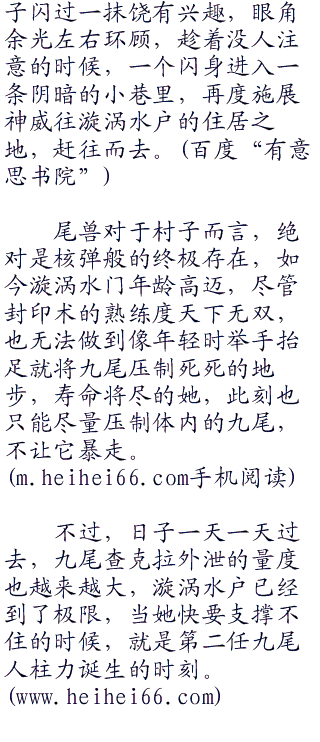 子闪过一抹饶有兴趣，眼角
余光左右环顾，趁着没人注
意的时候，一个闪身进入一
条阴暗的小巷里，再度施展
神威往漩涡水户的住居之
地，赶往而去。(百度“有意
思书院”)
尾兽对于村子而言，绝
对是核弹般的终极存在，如
今漩涡水门年龄高迈，尽管
封印术的熟练度天下无双，
也无法做到像年轻时举手抬
足就将九尾压制死死的地
步，寿命将尽的她，此刻也
只能尽量压制体内的九尾，
不让它暴走。
(m.heihei66.com手机阅读)
不过，日子一天一天过
去，九尾查克拉外泄的量度
也越来越大，漩涡水户已经
到了极限，当她快要支撑不
住的时候，就是第二任九尾
人柱力诞生的时刻。
(www.heihei66.com)